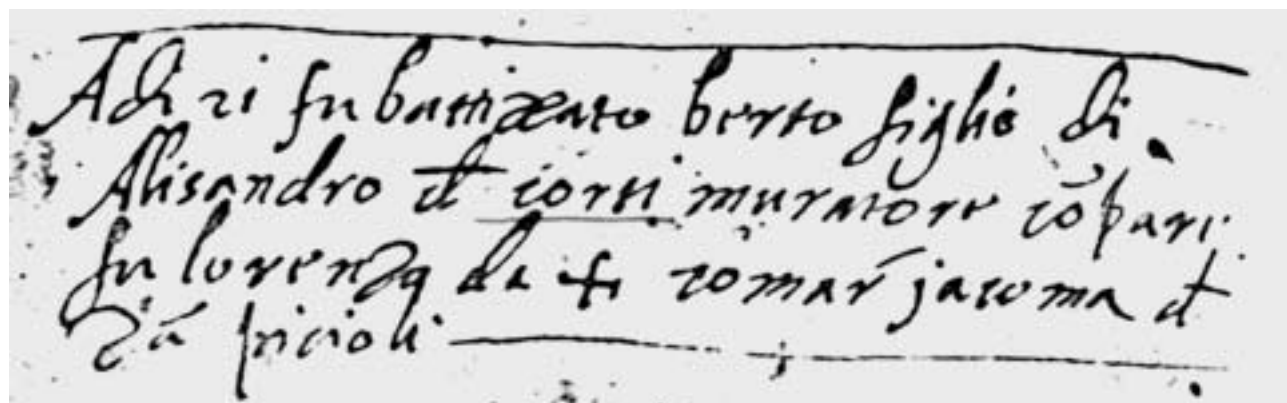 Adi 21 fu battizzato berto figlio di
Alisandro d corti muratore cõpare
fu lorenzo da + comar̃ jacoma d
picioli